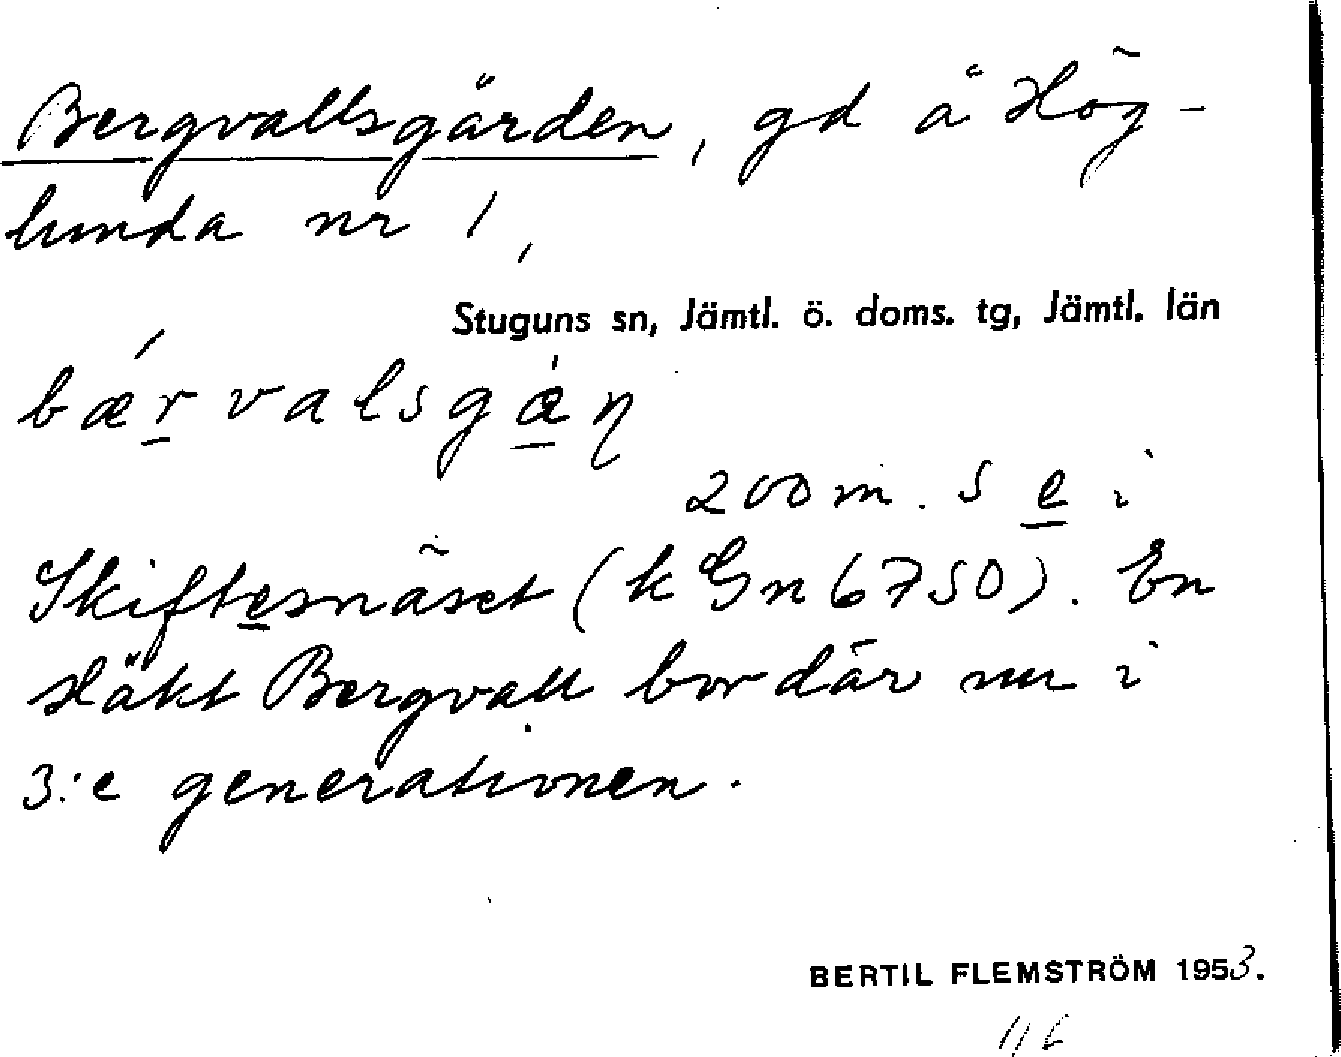 Bergvallsgården, gd å Hög-
lunda nr 1,
Stuguns sn, Jämtl. ö. doms. tg, Jämtl. län
bǽrvalsgàɳ
200 m. S e i
Skiftesnäset (k Gn 6750). En
släkt Bergvall bor där nu i
3:e generationen.
BERTIL FLEMSTRÖM 1953.